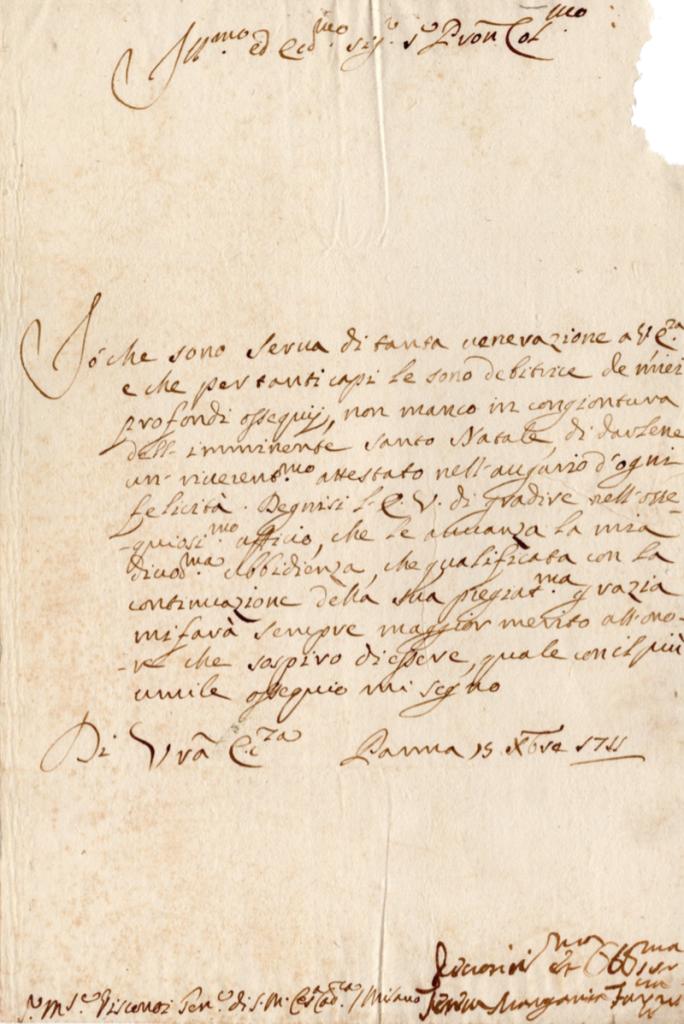 Ill.mo ed Ecc.mo Sig.r S.r Pron Col.mo
Jo che sono serua di tanta uenerazione a V. E.za
e che per tanti capi le sono debitrice de miei
profondi ossequij, non manco in congiontura
dell'imminente santo Natale, di darlene
un riuerent.mo attestato nell'augurio d'ogni
felicità. Degnisi l'E. V. di gradire nell'osse-
-quiosis.mo officio, che le auuanza la mia
diuot.ma obbidienza, che qualificata con la
continuazione della sua pregiat.ma grazia
mi farà sempre maggior merito all'ono-
-re che sospiro di essere, quale con il più
umile ossequio mi segno
Di Vrã E.za Parma 15 Xbre 1711
Visconti Gen. di S. M. Ces. Cat.ca / Milano
Margarita